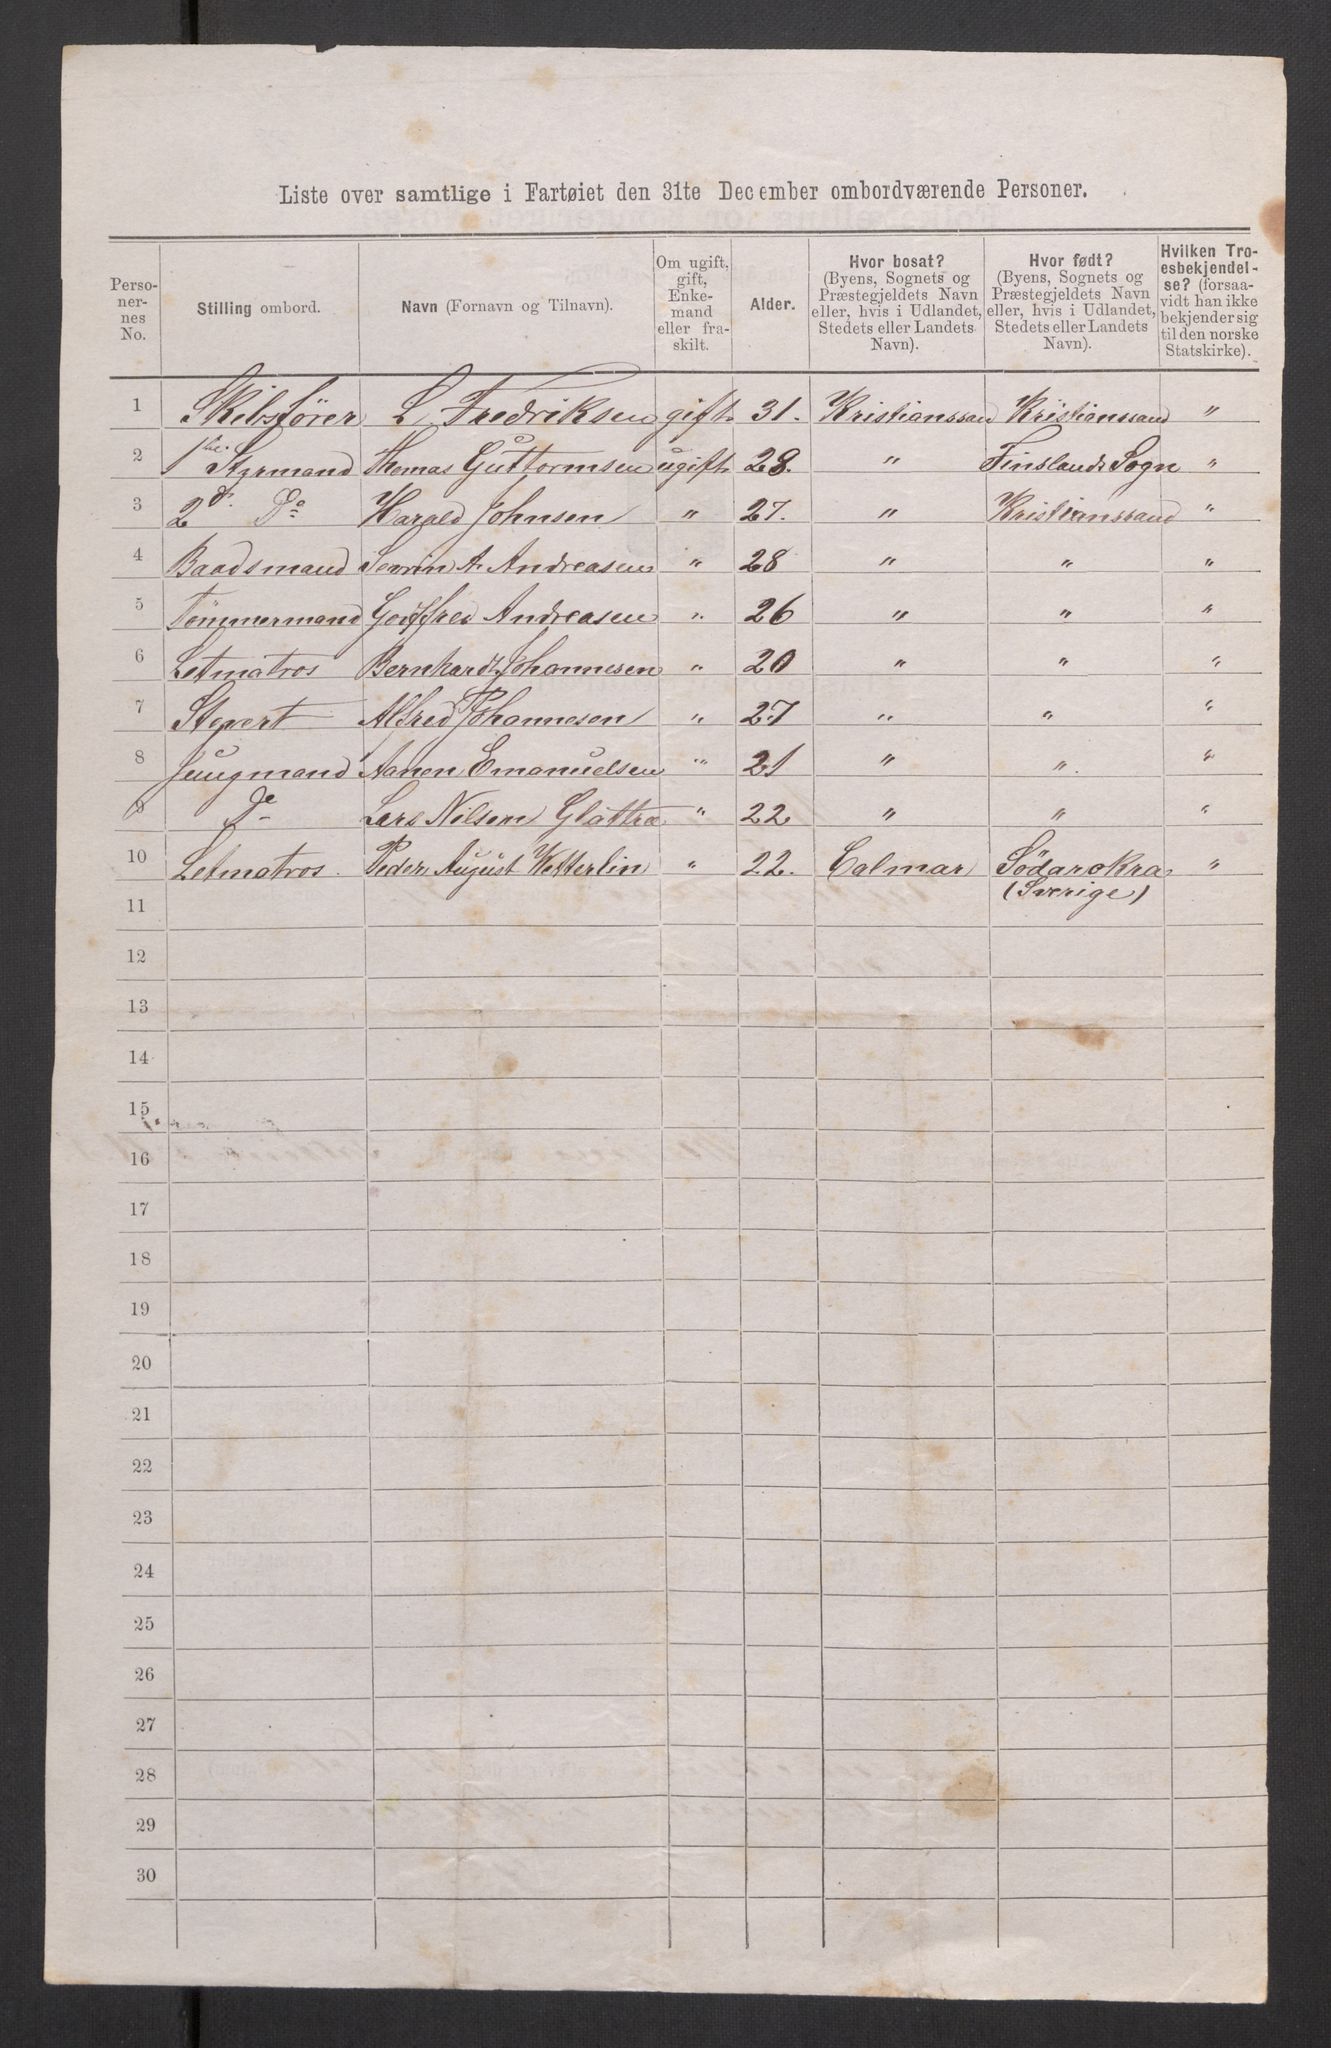 Liste over samtlige i Fartøiet den 31te December ombordværende Personer.
Personernes No. | Stilling ombord. | Navn (Fornavn og Tilnavn). | Om ugift, gift, Enkemand eller fraskilt. | Alder. | Hvor bosat? (Byens, Sognets og Præstegjeldets Navn eller, hvis i Udlandet, Stedets eller Landets Navn). | Hvor født? (Byens, Sognets og Præstegjeldets Navn eller, hvis i Udlandet, Stedets eller Landets Navn). | Hvilken Troesbekjendelse? (forsaavidt han ikke bekjender sig til den norske Statskirke).
1 Skibsfører L. Fredriksen gift. 31. Kristianssand Kristianssand "
2 1ste Styrmand Thomas Guttormsen ugift. 28. " Finslands Sogn "
3 2d. Do Harald Johnsen " 27. " Kristianssand "
4 Baadsmand Sevrin A. Andreasen " 28 " " "
5 Tömmermand Andreasen " 26 " " "
6 Letmatros Bernhardt Johannesen " 20 " " "
7 Stevert Alfred Johannesen " 27 " " "
8 Jungmand Aanen Emanuelsen " 21 " " "
9 Do Lars Nilsen Glattre " 22 " " "
10 Letmatros. Peder August Wetterlin " 22. Calmar Södarokra "
(Sverige)
11
12
13
14
15
16
17
18
19
20
21
22
23
24
25
26
27
28
29
30